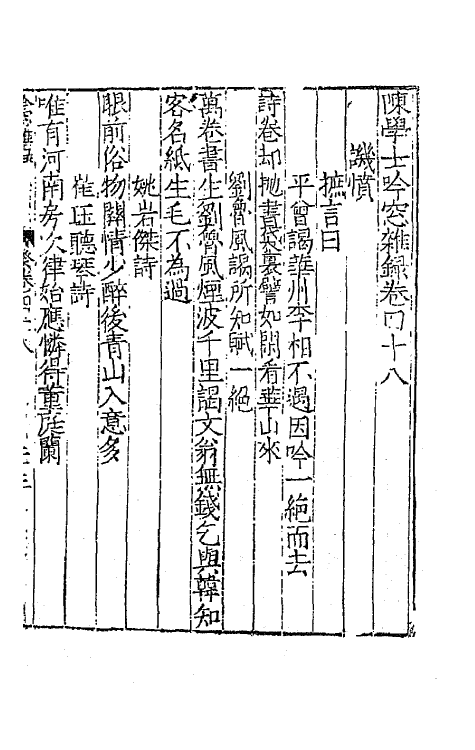 陳學士吟窓雜錄卷四十八
譏憤
摭言曰
平曾謁華州李相不遇因吟一絕而去
詩卷却抛書袋裏譬如閑看華山來
劉魯風謁所知賦一絕
萬卷書生劉魯風煙波千里謁文翁無錢乞與韓知
客名紙生毛不為通
姚岩傑詩
眼前俗物關情少醉後青山入意多
崔珏聽琴詩
唯有河南房次律始應憐得董庭蘭